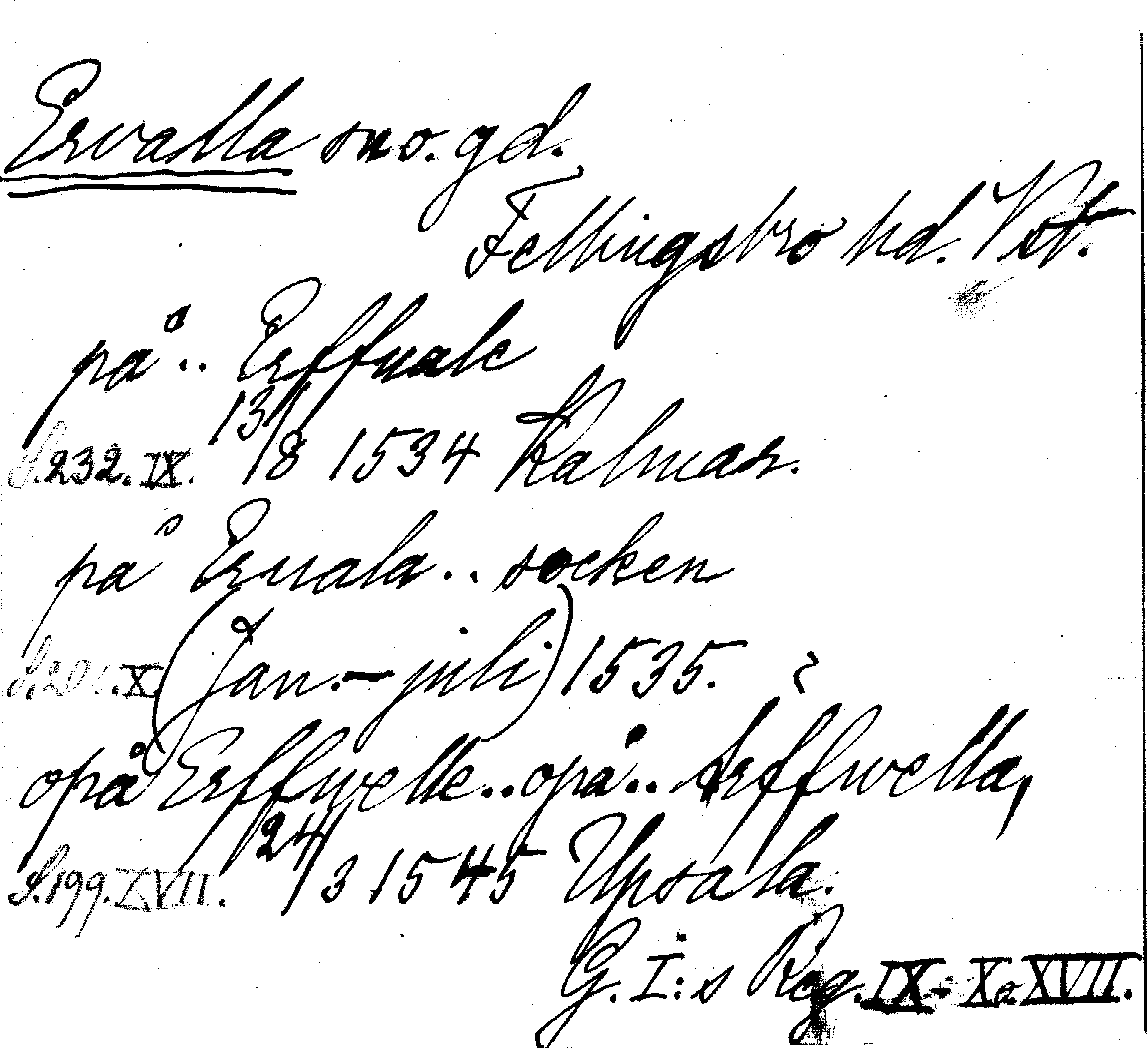 Ervalla sn o. gd.
Fellingsbro hd. Vstl.
på .. Erffuale
S. 232. IX. 13/8 1534 Kalmar.
på Eruala .. socken
X (Jan. - juli) 1535. ?
opå Erffwelle .. opå .. Arffwella,
S. 199. XVII. 24/3 1545 Upsala.
G. I:s Reg. IX - X o. XVII.